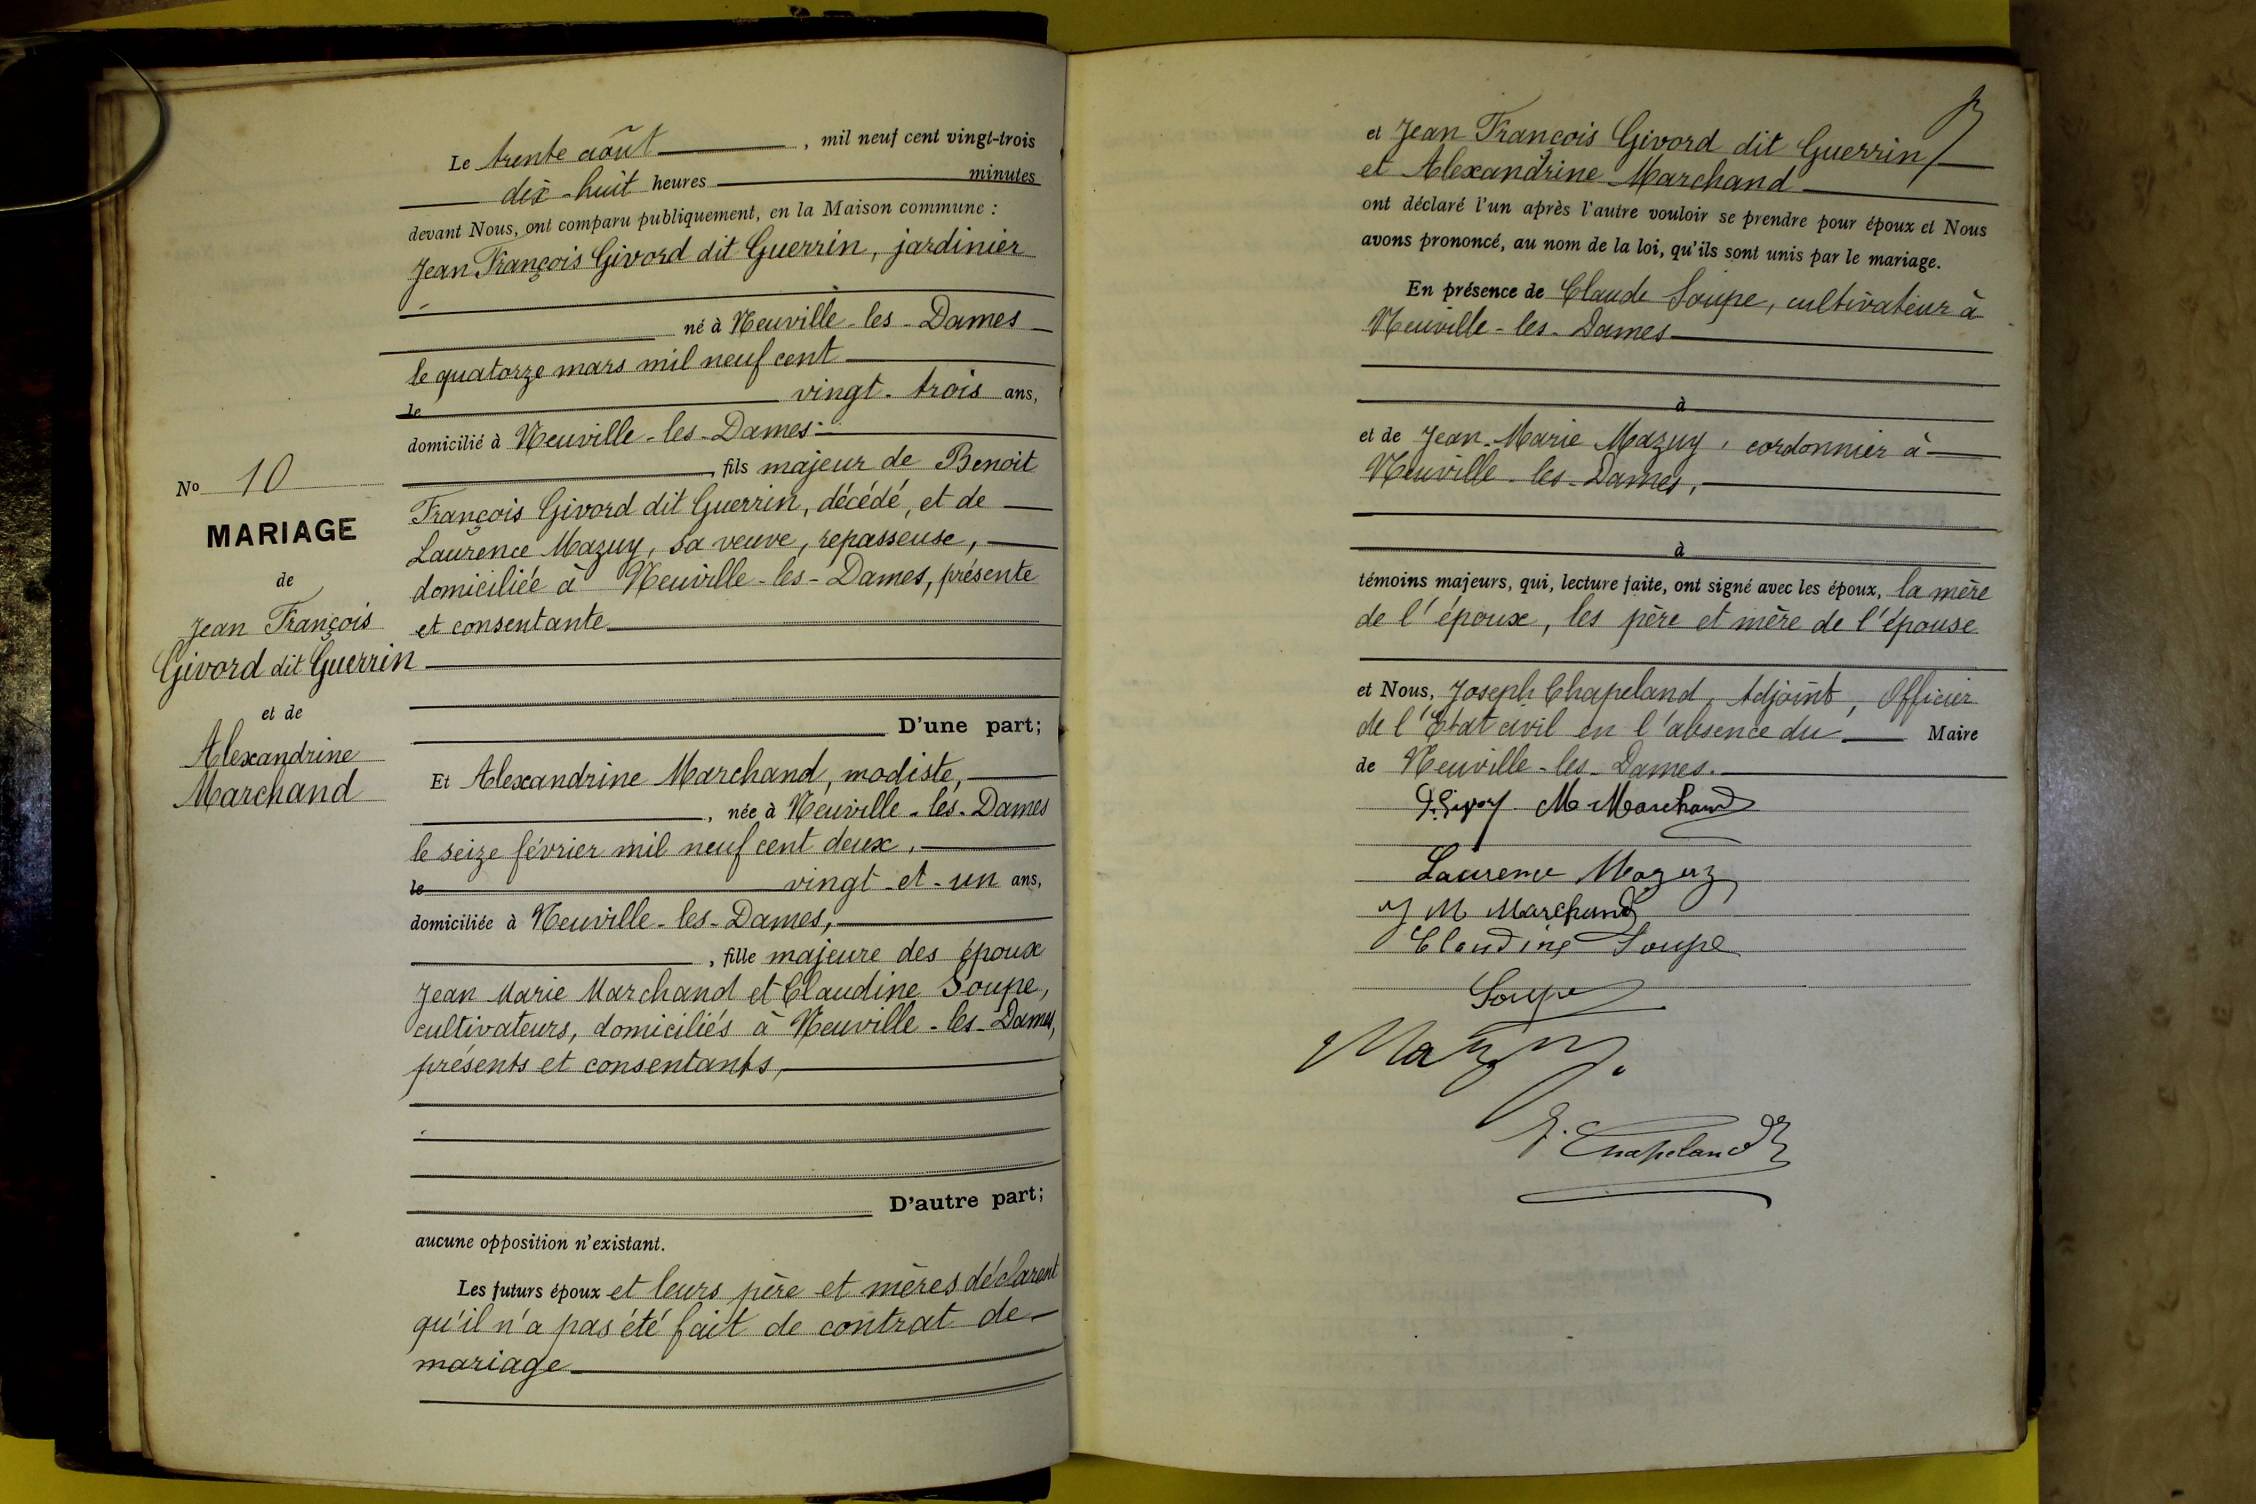 Le trente août , mil neuf cent vingt-trois
dix-huit heures minutes
devant Nous, ont comparu publiquement, en la Maison commune :
Jean François Givord dit Guerrin, jardinier
né à Neuville-les-Dames
le quatorze mars mil neuf cent
le vingt-trois ans,
domicilié à Neuville-les-Dames
, fils majeur de Benoit
François Givord dit Guerrin, décédé, et de
Laurence Mazuy, sa veuve, repasseuse,
domiciliée à Neuville-les-Dames, présente
et consentante
D'une part;
Et Alexandrine Marchand, modiste,
, née à Neuville-les-Dames
le seize février mil neuf cent deux,
le vingt-et-un ans,
domiciliée à Neuville-les-Dames,
, fille majeure des époux
Jean Marie Marchand et Claudine Soupe,
cultivateurs, domiciliés à Neuville-les-Dames,
présents et consentants,
D'autre part;
aucune opposition n'existant.
Les futurs époux et leurs père et mères déclarent
qu'il n'a pas été fait de contrat de
mariage
No 10
MARIAGE
de
Jean François
Givord dit Guerrin
et de
Alexandrine
Marchand
et Jean François Givord dit Guerrin
et Alexandrine Marchand
ont déclaré l'un après l'autre vouloir se prendre pour époux et Nous
avons prononcé, au nom de la loi, qu'ils sont unis par le mariage.
En présence de Claude Soupe, cultivateur à
Neuville-les-Dames
à
et de Jean-Marie Mazuy, cordonnier à
Neuville-les-Dames,
à
témoins majeurs, qui, lecture faite, ont signé avec les époux, la mère
de l'époux, les père et mère de l'épouse
et Nous, Joseph Chapeland, Adjoint, Officier
de l'Etat civil en l'absence du Maire
de Neuville-les-Dames.
M Marchand
Laurence Mazuy
J M Marchand
Claudine Soupe
Soupe
Mazuy
J. Chapeland